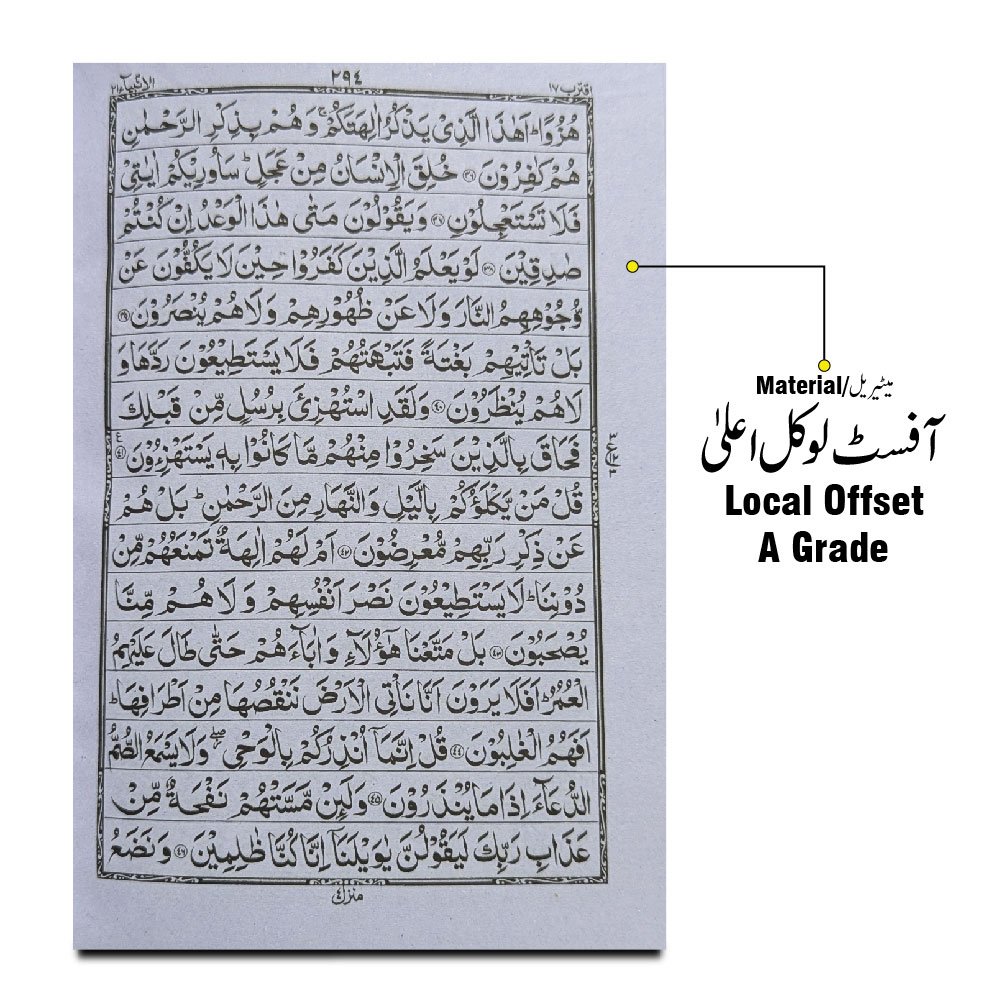 اقترب ١٧ ٢٩٤ الانبیاء ٢١
هُزُوًا ؕ اَهٰذَا الَّذِیْ یَذْكُرُ اٰلِهَتَكُمْ ۚ وَ هُمْ بِذِكْرِ الرَّحْمٰنِ
هُمْ كٰفِرُوْنَ ۝۳۶ خُلِقَ الْاِنْسَانُ مِنْ عَجَلٍ ؕ سَاُورِیْكُمْ اٰیٰتِیْ
فَلَا تَسْتَعْجِلُوْنِ ۝۳۷ وَ یَقُوْلُوْنَ مَتٰی هٰذَا الْوَعْدُ اِنْ كُنْتُمْ
صٰدِقِیْنَ ۝۳۸ لَوْ یَعْلَمُ الَّذِیْنَ كَفَرُوْا حِیْنَ لَا یَكُفُّوْنَ عَنْ
وُّجُوْهِهِمُ النَّارَ وَ لَا عَنْ ظُهُوْرِهِمْ وَ لَا هُمْ یُنْصَرُوْنَ ۝۳۹
بَلْ تَاْتِیْهِمْ بَغْتَةً فَتَبْهَتُهُمْ فَلَا یَسْتَطِیْعُوْنَ رَدَّهَا وَ
لَا هُمْ یُنْظَرُوْنَ ۝۴۰ وَ لَقَدِ اسْتُهْزِئَ بِرُسُلٍ مِّنْ قَبْلِكَ
فَحَاقَ بِالَّذِیْنَ سَخِرُوْا مِنْهُمْ مَّا كَانُوْا بِهٖ یَسْتَهْزِءُوْنَ ۝۴۱
قُلْ مَنْ یَّكْلَؤُكُمْ بِالَّیْلِ وَ النَّهَارِ مِنَ الرَّحْمٰنِ ؕ بَلْ هُمْ
عَنْ ذِكْرِ رَبِّهِمْ مُّعْرِضُوْنَ ۝۴۲ اَمْ لَهُمْ اٰلِهَةٌ تَمْنَعُهُمْ مِّنْ
دُوْنِنَا ؕ لَا یَسْتَطِیْعُوْنَ نَصْرَ اَنْفُسِهِمْ وَ لَا هُمْ مِّنَّا
یُصْحَبُوْنَ ۝۴۳ بَلْ مَتَّعْنَا هٰۤؤُلَآءِ وَ اٰبَآءَهُمْ حَتّٰی طَالَ عَلَیْهِمُ
الْعُمُرُ ؕ اَفَلَا یَرَوْنَ اَنَّا نَاْتِی الْاَرْضَ نَنْقُصُهَا مِنْ اَطْرَافِهَا ؕ
اَفَهُمُ الْغٰلِبُوْنَ ۝۴۴ قُلْ اِنَّمَاۤ اُنْذِرُكُمْ بِالْوَحْیِ ۖ وَ لَا یَسْمَعُ الصُّمُّ
الدُّعَآءَ اِذَا مَا یُنْذَرُوْنَ ۝۴۵ وَ لَىِٕنْ مَّسَّتْهُمْ نَفْحَةٌ مِّنْ
عَذَابِ رَبِّكَ لَیَقُوْلُنَّ یٰوَیْلَنَاۤ اِنَّا كُنَّا ظٰلِمِیْنَ ۝۴۶ وَ نَضَعُ
منزل ٤
Material/میٹیریل
آفسٹ لوکل اعلیٰ
Local Offset
A Grade